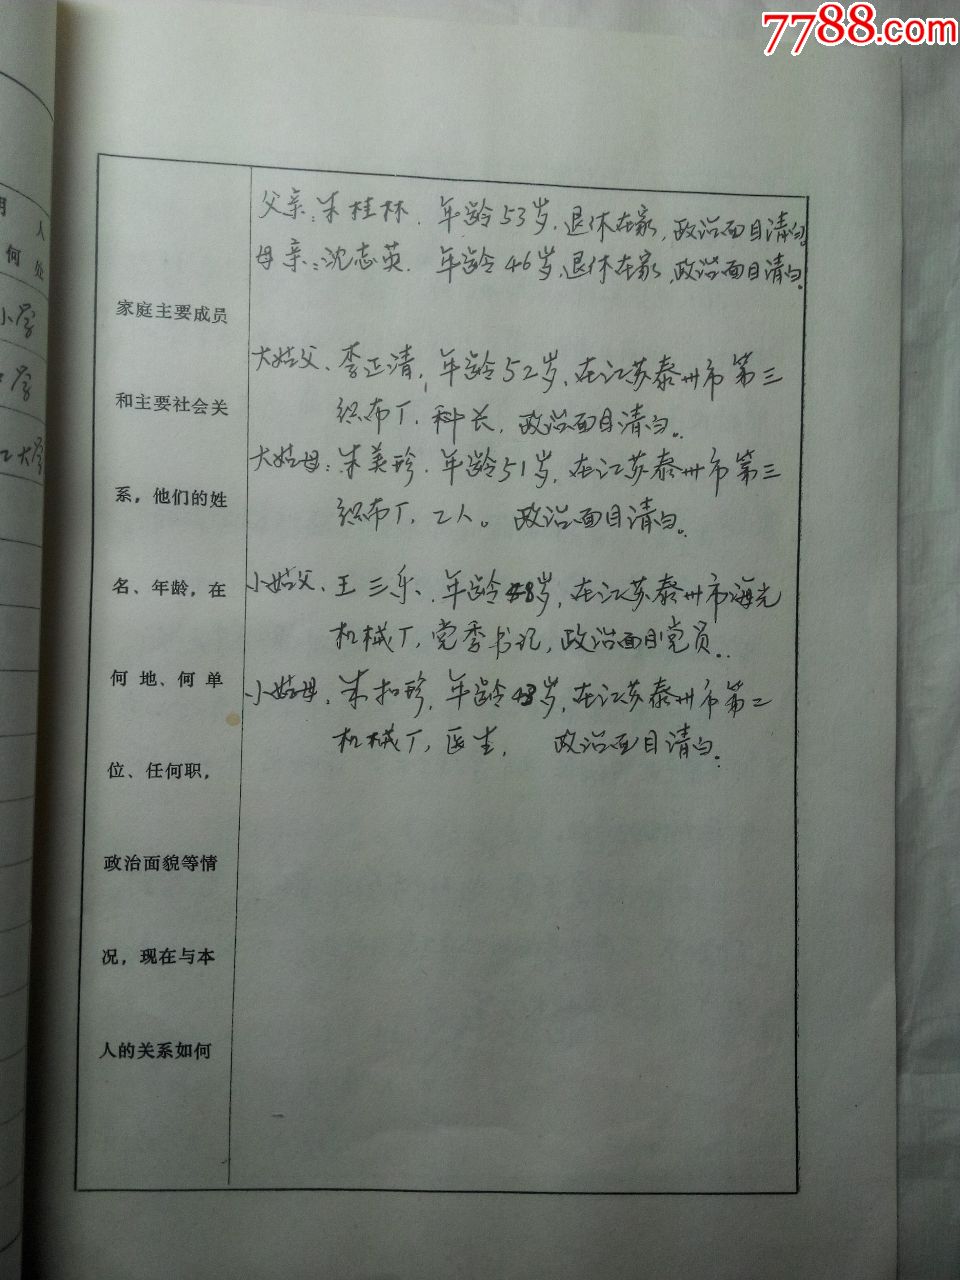 7788.com
明 人
何 处
小学
学
大学
家庭主要成员
和主要社会关
系，他们的姓
名、年龄，在
何 地、何 单
位、任何职，
政治面貌等情
况，现在与本
人的关系如何
父亲：朱桂林．年龄53岁，退休在家，政治面目清白。
母亲：沈志英．年龄46岁，退休在家，政治面目清白。
大姑父、李正清，年龄52岁，在江苏泰州市第三
织布厂，科长，政治面目清白。
大姑母：朱美珍．年龄51岁，在江苏泰州市第三
织布厂，工人。政治面目清白。
小姑父、王三乐．年龄48岁，在江苏泰州市海光
机械厂，党委书记，政治面目党员．
小姑母，朱扣珍，年龄43岁，在江苏泰州市第二
机械厂，医生， 政治面目清白。